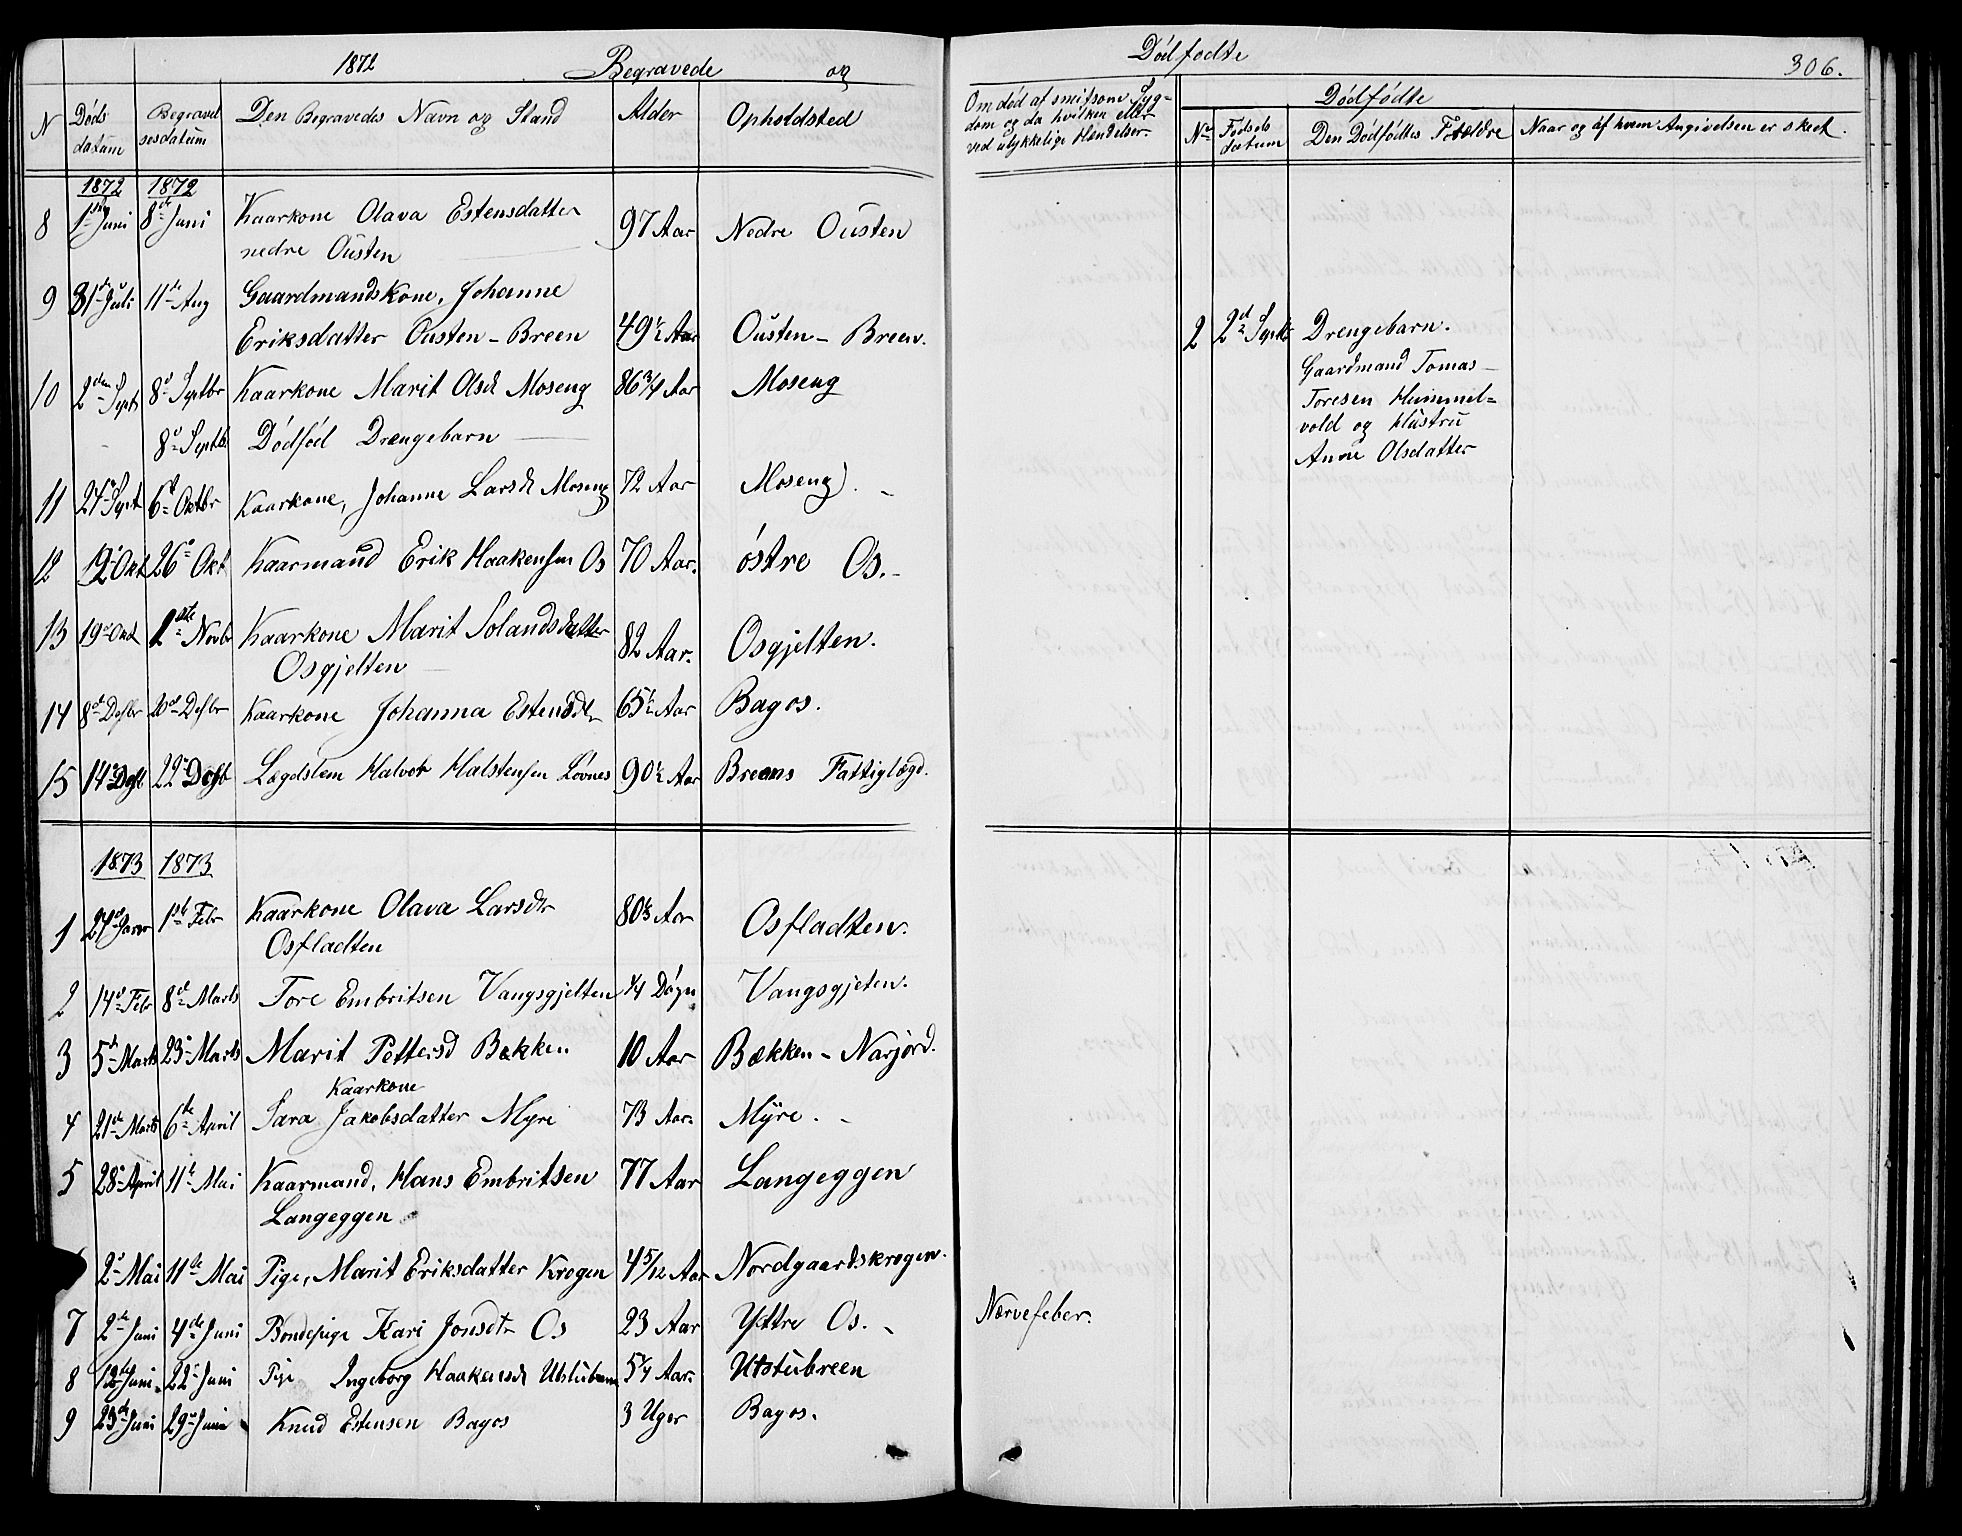 1872 Begravede og
N Døds datum Begravelsesdatum Den Begravedes Navn og Stand Alder Opholdsted
1872 1872
8 1ste Juni 8de Juni Kaarkone Olava Estensdatter 97 Aar Nedre Ousten
nedre Ousten
9 31de Juli 11de Aug Gaardmandskone, Johanne
Eriksdatter Ousten - Breen 49½ Aar Ousten - Breen.
10 2den Sept 8d Septbr Kaarkone Marit Olsd Moseng 86 3/4 Aar Moseng
8d Septb Dødfød Drengebarn
11 27 Sept 6t Oktbr Kaarkone, Johanne Larsd Moseng 72 Aar Moseng. -
12 19d Okt 26d Okt Kaarmand Erik Haakensen Os 70 Aar. østre Os. -
13 19d 1ste Novb Kaarkone Marit Solandsdatter
82 Aar. Osgjelten.
Osgjelten
14 8de Desbr 20d Desbr Kaarkone Johanna Estensdtr 65½ Aar Bagos.
15 14d Desb 22d Desb Lægdslem Halvor Halstensen Løvnes 90½ Aar Breens Fattiglægd.
1873 1873
1 27d Janr 1ste Febr Kaarkone Olava Larsdtr 80½ Aar Osfladten.
Osfladten
2 14d Febr 8de Marts Tore Embritsen Vangsgjelten ¼ Døgn Vangsgjeten.
3 5te Marts 23d Marts Marit Pettersd Bækken 10 Aar Bækken - Narjord.
Kaarkone
4 21de Marts 6de April Sara Jakobsdatter Myre 73 Aar. Myre. -
5 28d April 11te Mai Kaarmand, Hans Embritsen 77 Aar Langeggen
Langeggen
2d Mai 11de Mai Pige, Marit Eriksdatter Krogen 4 5/12 Aar Nordgaardskrogen.
7 2de Juni 4de Juni Bondepige Kari Jonsdtr Os 23 Aar Yttre Os. -
8 12te Juni. 22d Juni Pige Ingeborg Haakensd Utstubreen 5¼ Aar. Utstubreen
9 23de Juni 29d Juni Knud Estensen Bagos 3 Uger Bagos.
Dødfødte 306.
Om død af smitsom Syg=
dom og da hvilken eller
ved ulykkelige Hændelser.
Dødfødte
No Fødsels datum Den Dødfødtes Forældre Naar og af hvem Angivelsen er skeet.
2 2d Septbr Drengebarn.
Gaardmand Tomas
Toresen Hummel=
vold og Hustru
Anne Olsdatter
Nervefeber.